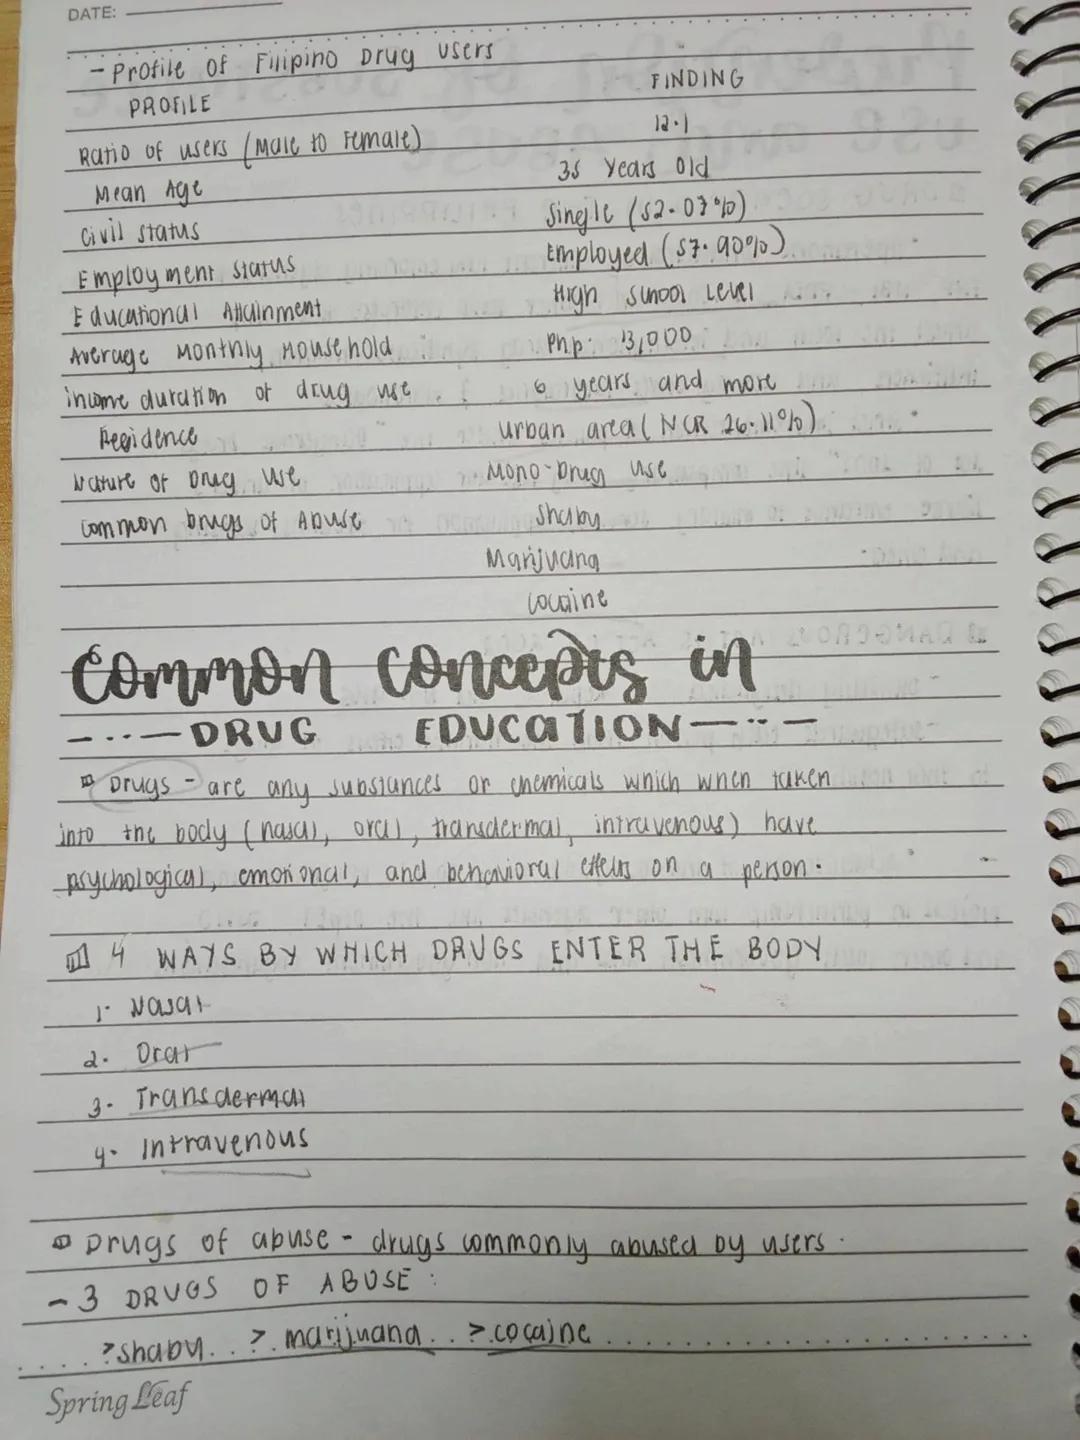 DATE:
- Profile of Filipino Drug Users
PROFILE FINDING
Ratio of users (Male to Female) 12.1
Mean Age 35 Years Old
Civil Status Single (52.03%)
Employment Status Employed (57.90%)
Educational Attainment High School Level
Average Monthly Household Php. 13,000
income duration of drug use 6 years and more
Residence Urban area (NCR 26.11%)
Nature of Drug Use Mono-Drug Use
Common Drugs of Abuse Shabu
Marijuana
Cocaine
Common concepts in
DRUG EDUCATION
Drugs - are any substances or chemicals which when taken
into the body (nasal, oral, transdermal, intravenous) have
psychological, emotional, and behavioral effects on a person.
4 WAYS BY WHICH DRUGS ENTER THE BODY
1. Nasal
2. Oral
3. Transdermal
4. Intravenous
Drugs of abuse - drugs commonly abused by users.
- 3 DRUGS OF ABUSE:
> shabu > marijuana > cocaine
Spring Leaf